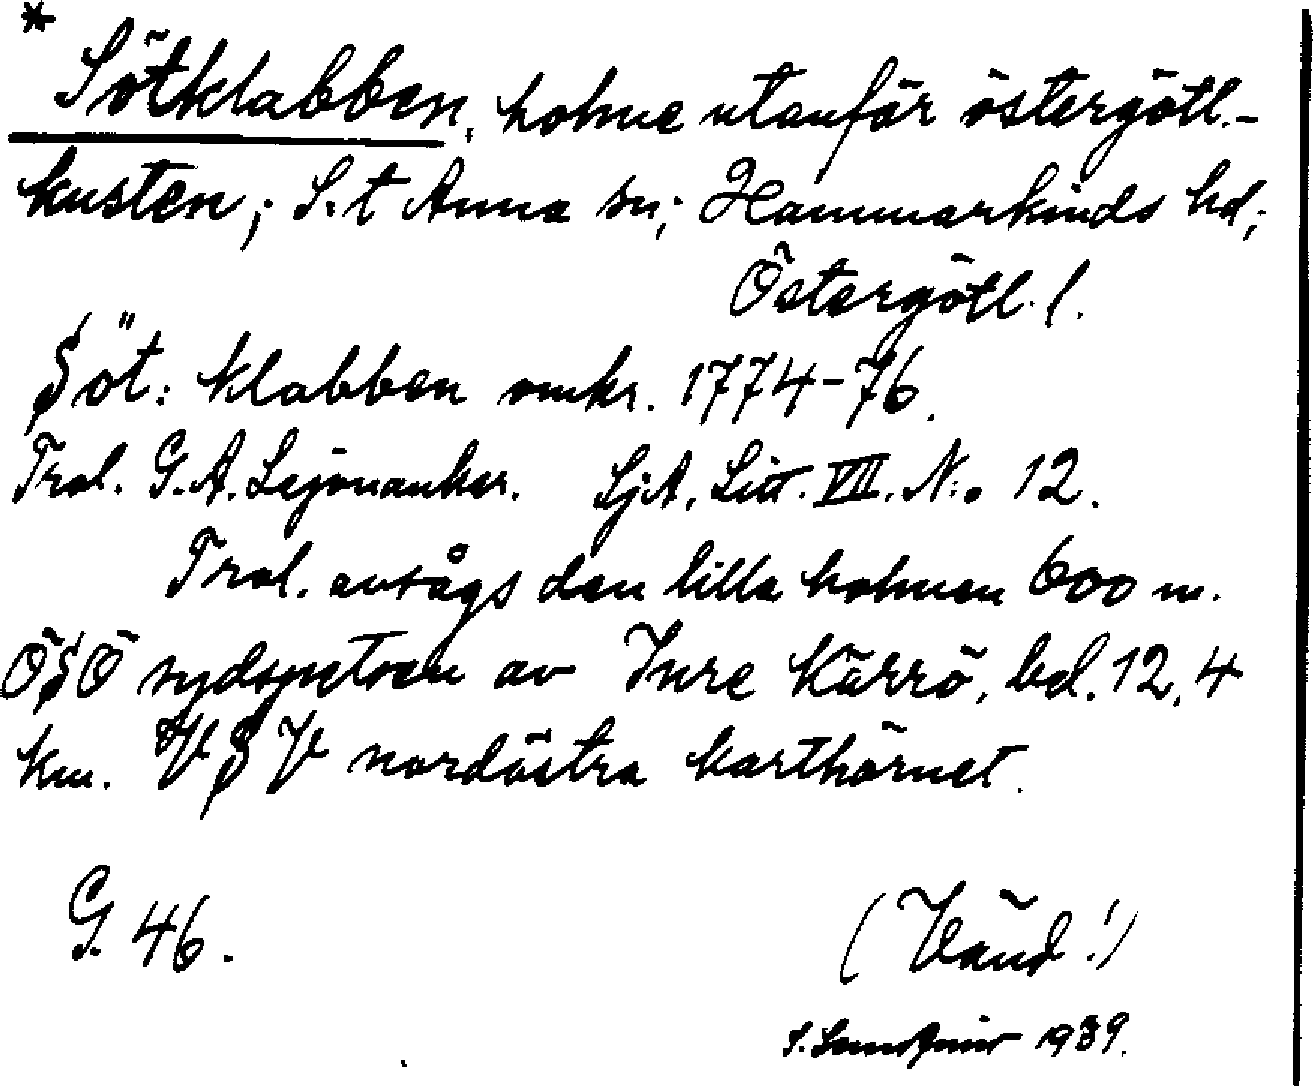 * Sötklabben, holme utanför östergötl.-
kusten; S:t Anna sn; Hammarkinds hd;
Östergötl. l.
Söt: klabben omkr. 1774-76.
Trol. G. A. Lejonanker. SjA. Litt. VII. N:o 12.
Trol. avsågs den lilla holmen 600 m.
ÖSÖ sydspetsen av Inre Kärrö, bel. 12,4
km. VSV nordöstra karthörnet.
G. 46.
(Vänd!)
1939.